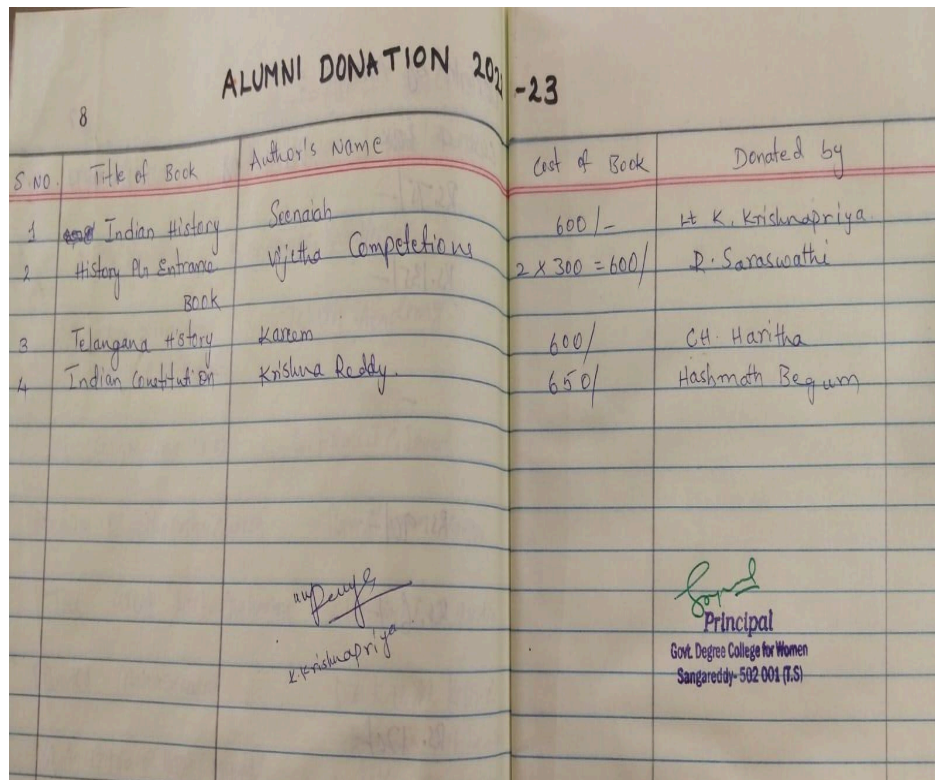 ALUMNI DONATION 2022-23
8
S NO. Title of Book Author's Name Cost of Book Donated by
1 Indian History Seenaiah 600/- Lt K. Krishnapriya
2 History PG Entrance Vijetha Competetions 2 x 300 = 600/ R. Saraswathi
BOOK
3 Telangana History Kareem 600/ CH. Haritha
4 Indian Constitution Krishna Reddy. 650/ Hashmath Begum
K. Krishnapriya
Principal
Govt. Degree College for Women
Sangareddy- 502 001 (T.S)